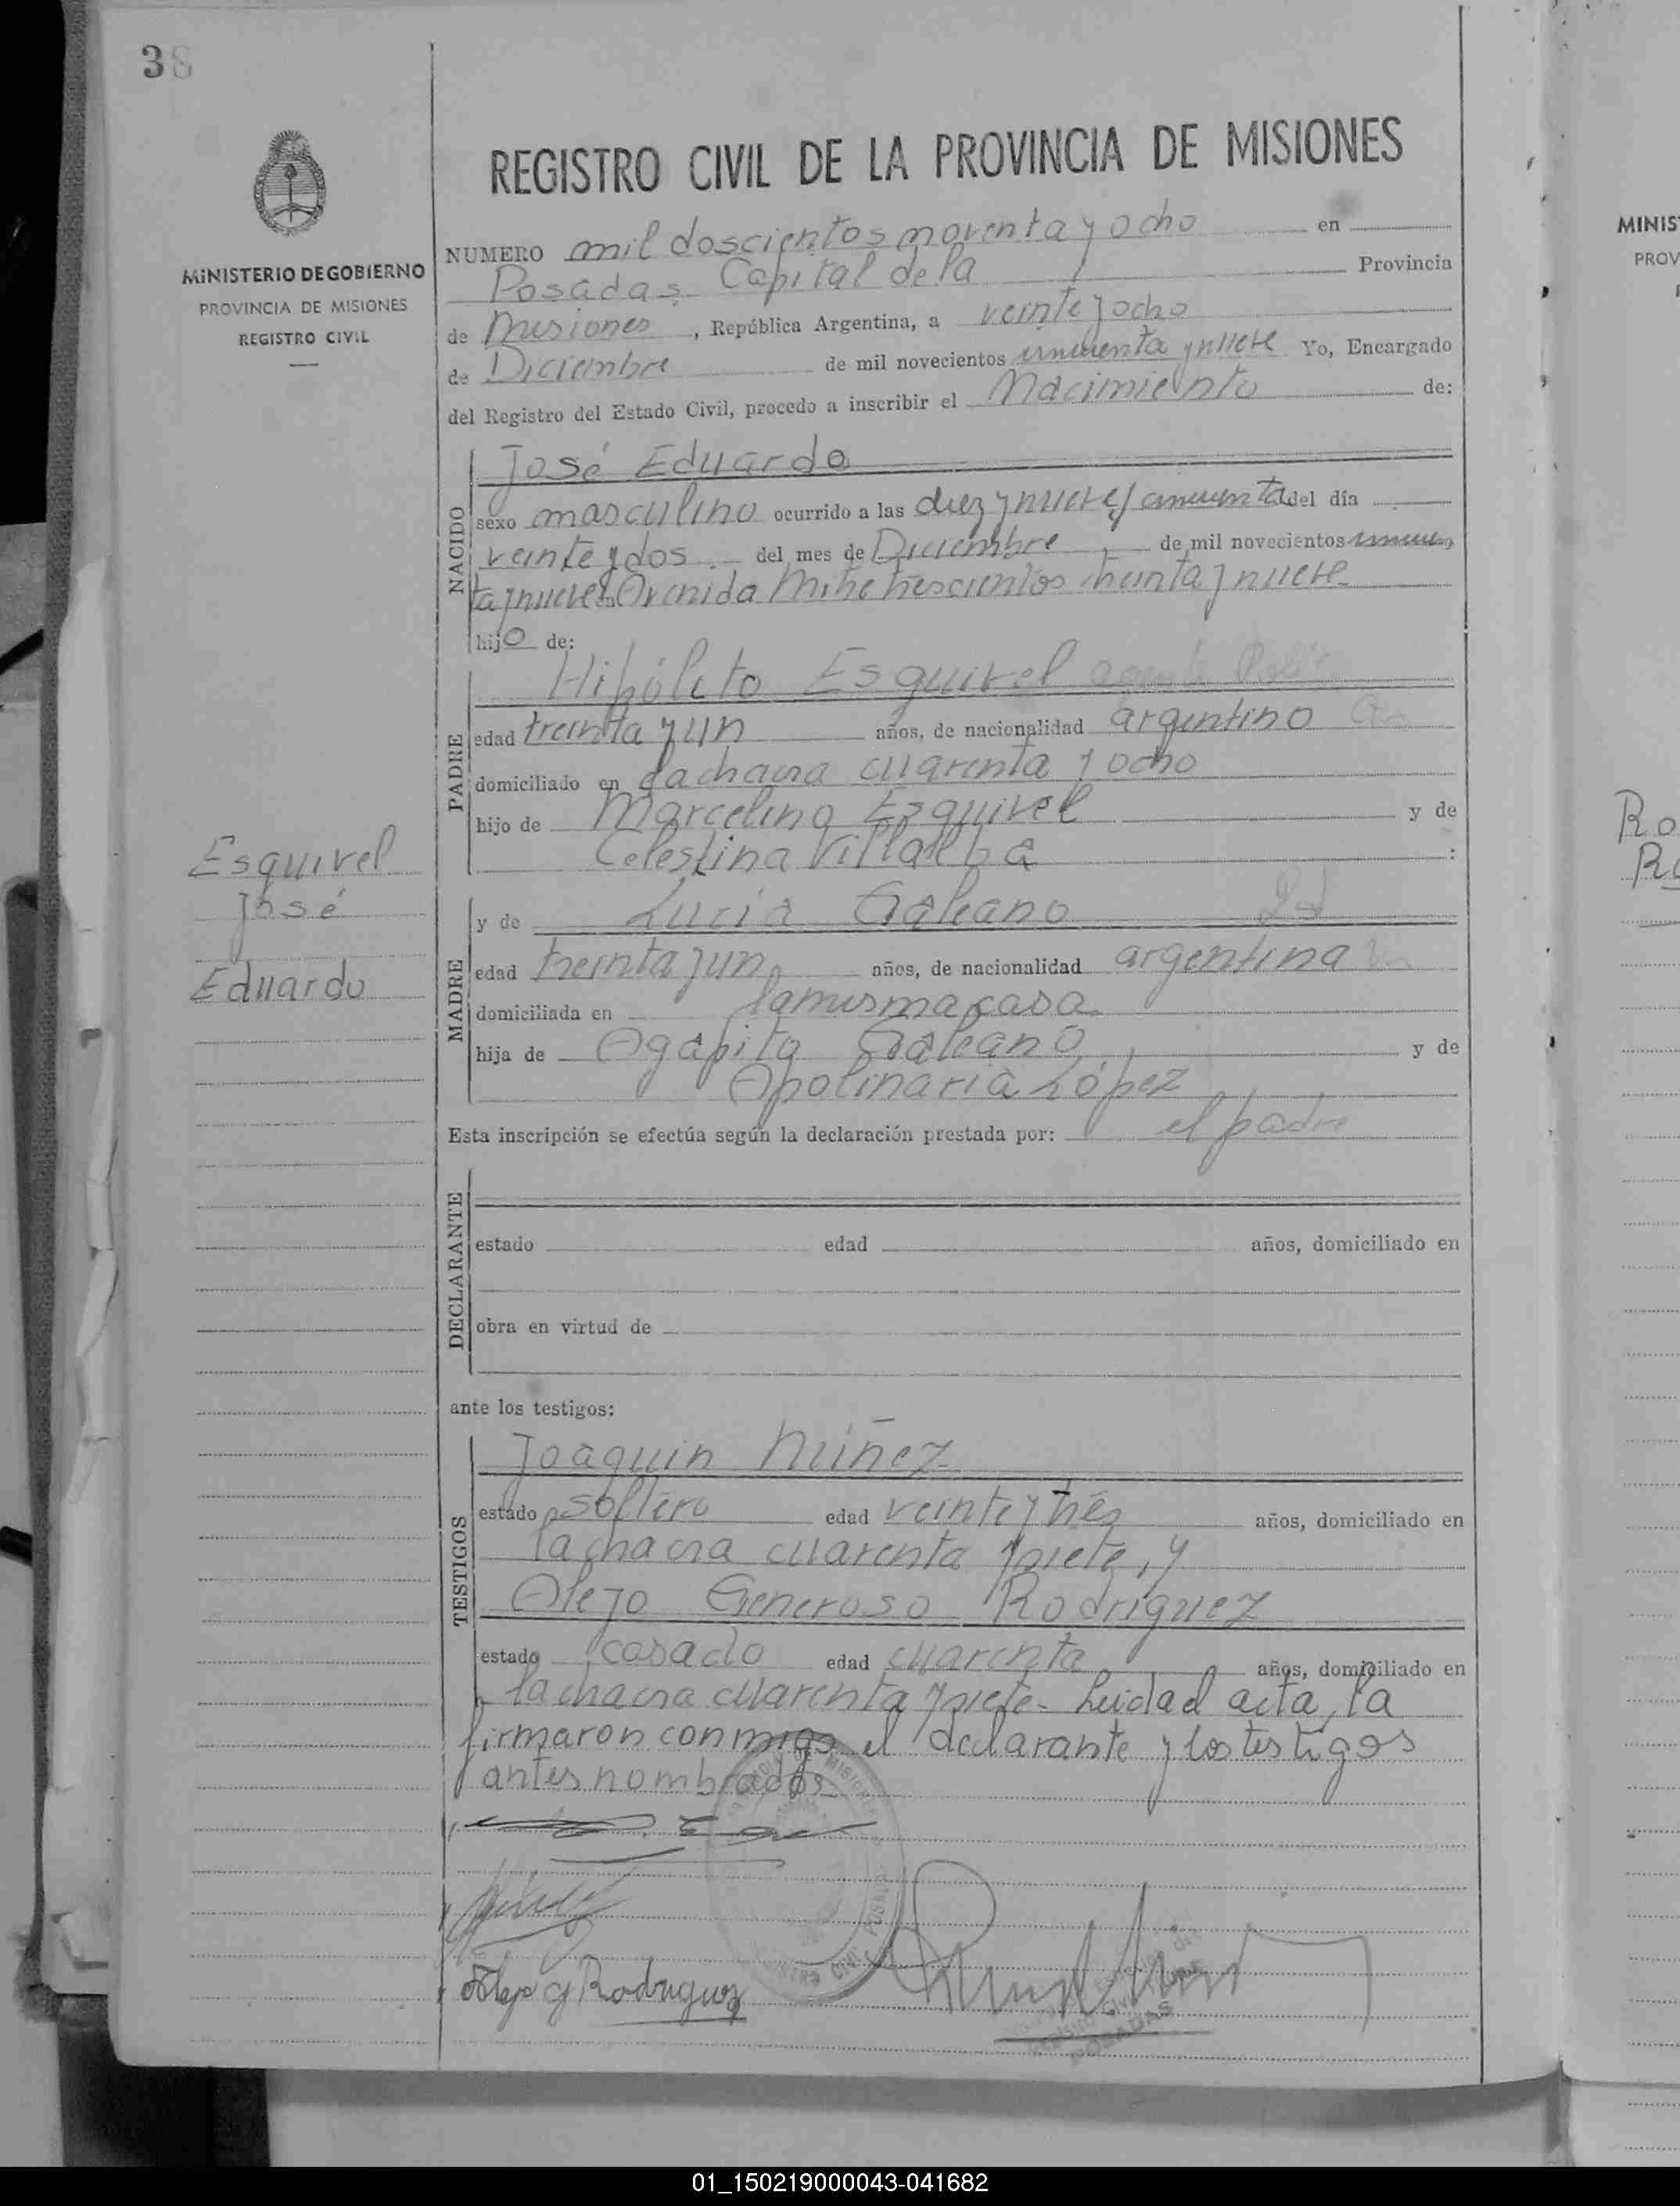 38
REGISTRO CIVIL DE LA PROVINCIA DE MISIONES
MINISTERIO DE GOBIERNO
PROVINCIA DE MISIONES
REGISTRO CIVIL
NUMERO mil doscientos noventa y ocho en
Posadas Capital de la Provincia
de Misiones, República Argentina, a veinte y ocho
de Diciembre de mil novecientos cincuenta y nueve Yo, Encargado
del Registro del Estado Civil, procedo a inscribir el Nacimiento de:
NACIDO
José Eduardo
sexo masculino ocurrido a las diez y nueve y cincuenta del día
veinte y dos del mes de Diciembre de mil novecientos cincuen
ta y nueve en Avenida Mitre trescientos treinta y nueve
hijo de:
PADRE
Hipólito Esquivel agente
edad treinta y un años, de nacionalidad argentino
domiciliado en la chacra cuarenta y ocho
hijo de Marcelino Esquivel y de
Celestina Villalba :
Esquivel
José
Eduardo
MADRE
y de Lucia Galeano
edad treinta y un años, de nacionalidad argentina
domiciliada en la misma casa
hija de Agapito Galeano y de
Apolinaria López
Esta inscripción se efectúa según la declaración prestada por: el padre
DECLARANTE
estado edad años, domiciliado en
obra en virtud de
ante los testigos:
TESTIGOS
Joaquin Núñez
estado soltero edad veinte y tres años, domiciliado en
la chacra cuarenta y siete, y
Alejo Generoso Rodriguez
estado casado edad cuarenta años, domiciliado en
la chacra cuarenta y siete- Leida el acta, la
firmaron conmigo el declarante y los testigos
antes nombrados
Alejo G Rodriguez
POSADAS
MINIS
PROV
Ro
01_150219000043-041682